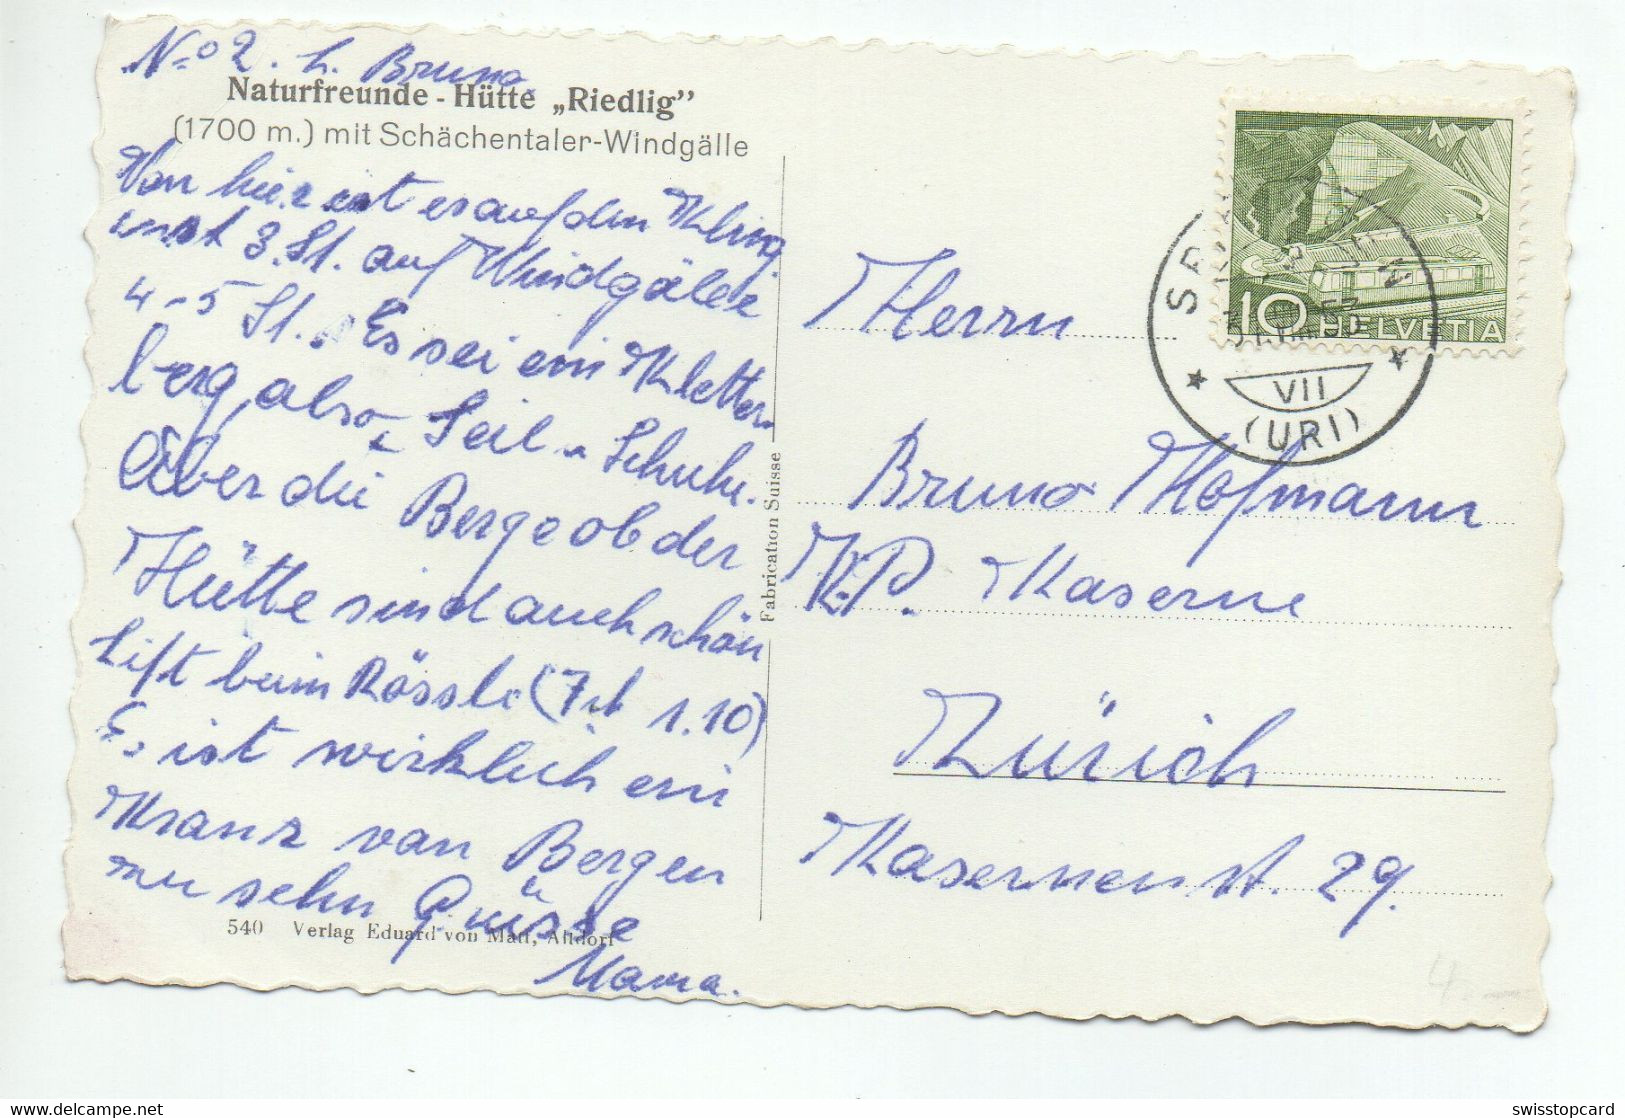 No 2. L. Bruno
Naturfreunde - Hütte „Riedlig”
(1700 m.) mit Schächentaler-Windgälle
Von hier ist es auf den Kling
3. St. auf Windgälle
4-5 St. Es sei ein Kletter
berg, also Seil u Schuhe.
Aber die Berge ob der
Hütte sind auch schön
Lift beim Rössli (7 1.10)
Es ist wirklich ein
Kranz von Bergen
zu sehn Grüsse
Mama.
540 Verlag Eduard von Matt, Altdorf
Fabrication Suisse
10 HELVETIA
VII
(URI)
Herrn
Bruno Hofmann
K.P. Kaserne
Zürich
Kasernenst. 29.
4.-
swisstopcard